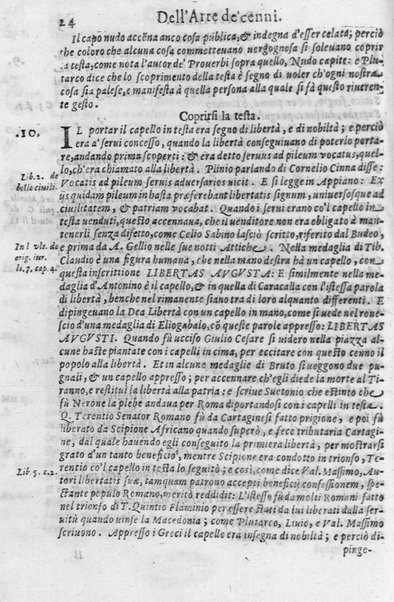 24
Dell'Arte de'cenni.
Il capo nudo accéna anco cosa publica, & indegna d'esser celata; perciò
che coloro che alcuna cosa commetteuano vergognosa si soleuano coprir
a testa, come nota l'autor de' Prouerbi sopra quello, Nudo capite: e Plu-
tarco dice che lo scoprimento della testa è segno di voler ch'ogni nostra
cosa sia palese, e manifesta à quella persona alla quale si fà questo riueren-
te gesto.
Coprirsi la testa.
10.
IL portar il capello in testa era segno di libertà, e di nobiltà; e perciò
era a' serui concesso, quando la libertà conseguiuano di poterlo porta-
re, andando prima scoperti: & era detto seruus ad pileum vocatus, quel-
lo, ch'era chiamato alla libertà. Plinio parlando di Cornelio Cinna disse:
Lib. 2. de
bello ciuili.
Vocatis ad pileum seruis aduersarios vicit. E si legge in Appiano: Ex
ijs quidam pileum in hasta præferebant libertatis signum, uniuersosque ad
ciuilitatem, & patriam vocabat. Quando i serui erano co'l capello in te-
sta venduti, questo accennaua, che il venditore non era obligato à man-
tenerli senza difetto, come Celio Sabino lasciò scritto, riferito dal Budeo,
In l vlt. de
orig. iur.
li. 7. cap. 4.
e prima da A. Gellio nelle sue notti Attiche. Nella medaglia di Tib.
Claudio è una figura humana, che nella mano destra hà un capello, con
questa inscrittione LIBERTAS AVGVSTA: E similmente nella me-
daglia d'Antonino è il capello, & in quella di Caracalla con l'istessa parola
di libertà, benche nel rimanente siano tra di loro alquanto differenti. E
dipingeuano la Dea Libertà con un capello in mano, come si uede nel roue-
scio d'una medaglia di Eliogabalo, cō queste parole appresso: LIBERTAS
AVGVSTI. Quando fù ucciso Giulio Cesare si uidero nella piazza al-
cune haste piantate con i capelli in cima, per eccitare con questo cenno il
popolo alla libertà. Et in alcune medaglie di Bruto si ueggono due pu-
gnali, & un capello appresso; per accennare ch'egli diede la morte al Ti-
ranno, e restituì la libertà alla patria: e scriue Suetonio che estinto che
fù Nerone la plebe andaua per Roma diportandosi con i capelli in testa.
Q. Terentio Senator Romano fù da Cartaginesi fatto prigione, e poi fù
liberato da Scipione Africano quando superò, e fece tributaria Cartagi-
ne, dal quale hauendo egli conseguito la primiera libertà, per mostrarsi
grato d'un tanto beneficio, mentre Scipione era condotto in trionfo, Te-
Lib 5. c. 2.
rentio co'l capello in testa lo seguitò; e così, come dice Val. Massimo, Au-
tori libertatis suæ, tamquam patrono accepti beneficij confessionem, spe-
ctante populo Romano, meritò reddidit: L'istesso fù da molti Romani fatto
nel trionfo di T. Quintio Flaminio per essere stati da lui liberati dalla ser-
uitù quando uinse la Macedonia; come Plutarco, Liuio, e Val. Massimo
scriuono. Appresso i Greci il capello era insegna di nobiltà; e perciò di-
pinge-